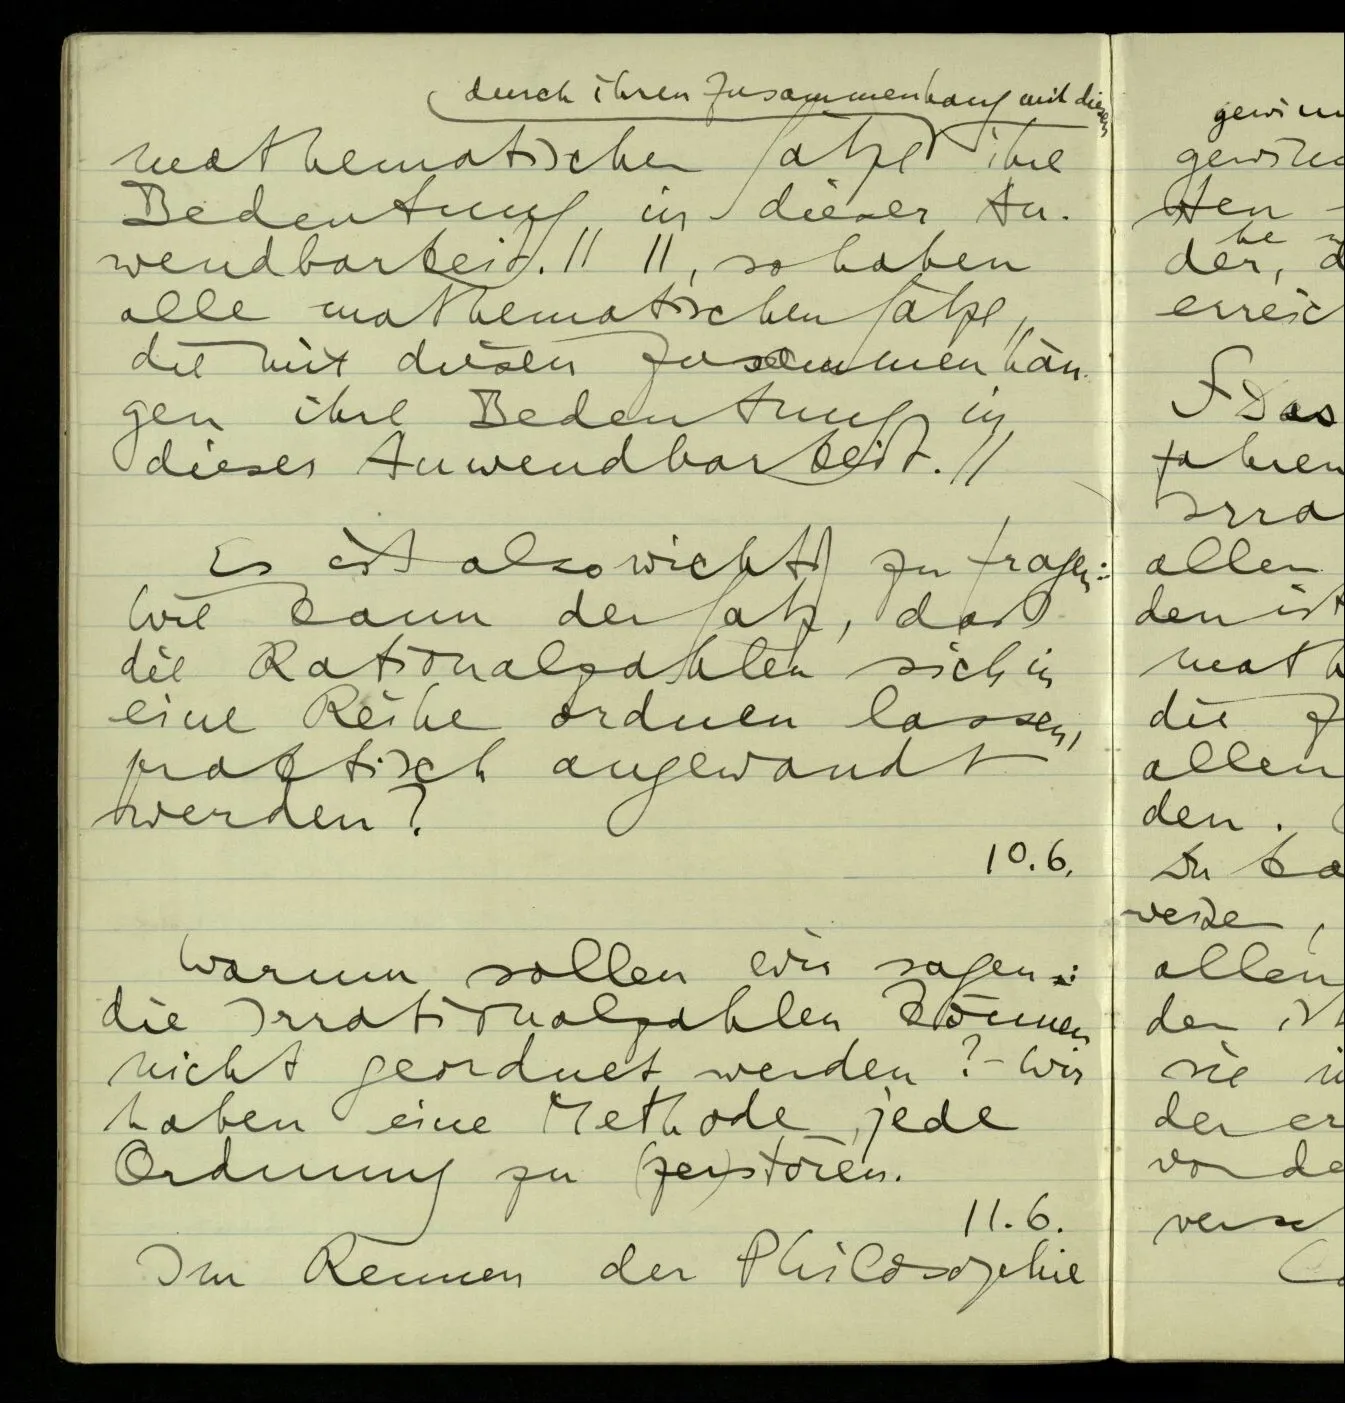 durch ihren Zusammenhang mit diesen
mathematischen Sätze ihre
Bedeutung in dieser An-
wendbarkeit. // //, so haben
alle mathematischen Sätze,
die mit diesen zusammenhän-
gen ihre Bedeutung in
dieser Anwendbarkeit. //
Es ist also wichtig zu fragen:
Wie kann der Satz, daß
die Rationalzahlen sich in
eine Reihe ordnen lassen,
praktisch angewandt
werden?
10.6.
Warum sollen wir sagen:
die Irrationalzahlen können
nicht geordnet werden? – Wir
haben eine Methode, jede
Ordnung zu (zer)stören.
11.6.
Im Rennen der Philosophie
gewin
gewin
ten
der,
erreic
Das
fahren
Irra
allen
den ist
math
die Z
allen
den.
Du ka
weisen,
allen
den ist
sie
der er
von de
versch